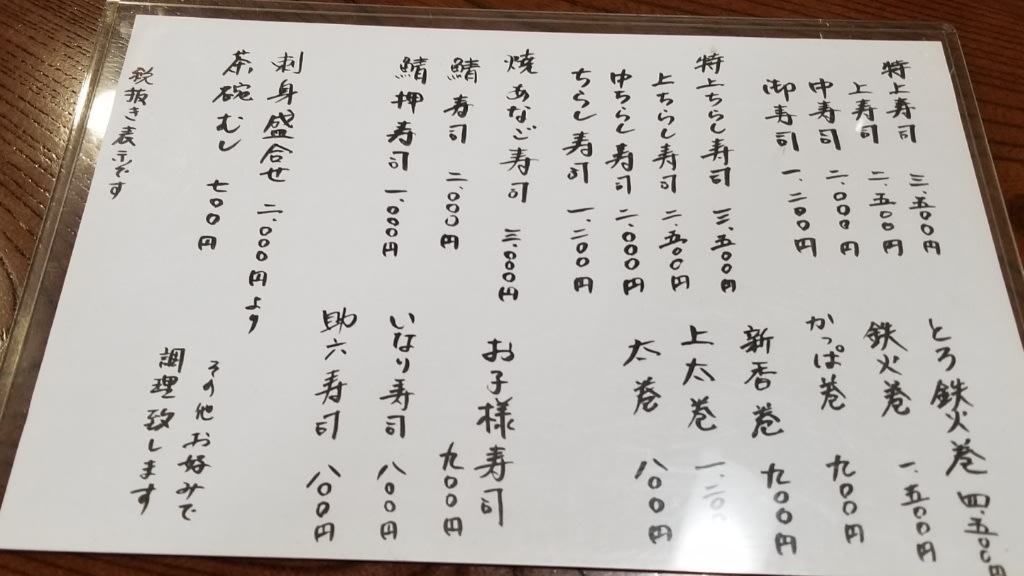 特上寿司 三.五〇〇円
上寿司 二.五〇〇円
中寿司 二.〇〇〇円
御寿司 一.二〇〇円
特上ちらし寿司 三.五〇〇円
上ちらし寿司 二.五〇〇円
中ちらし寿司 二.〇〇〇円
ちらし寿司 一.二〇〇円
焼あなご寿司 三.〇〇〇円
鯖寿司 二.〇〇〇円
鯖押寿司 一.〇〇〇円
刺身盛合せ 二.〇〇〇円より
茶碗むし 七〇〇円
税抜き表示です
とろ鉄火巻 四.五〇〇円
鉄火巻 一.五〇〇円
かっぱ巻 九〇〇円
新香巻 九〇〇円
上太巻 一.二〇〇
太巻 八〇〇円
お子様寿司 九〇〇円
いなり寿司 八〇〇円
助六寿司 八〇〇円
その他お好みで
調理致します